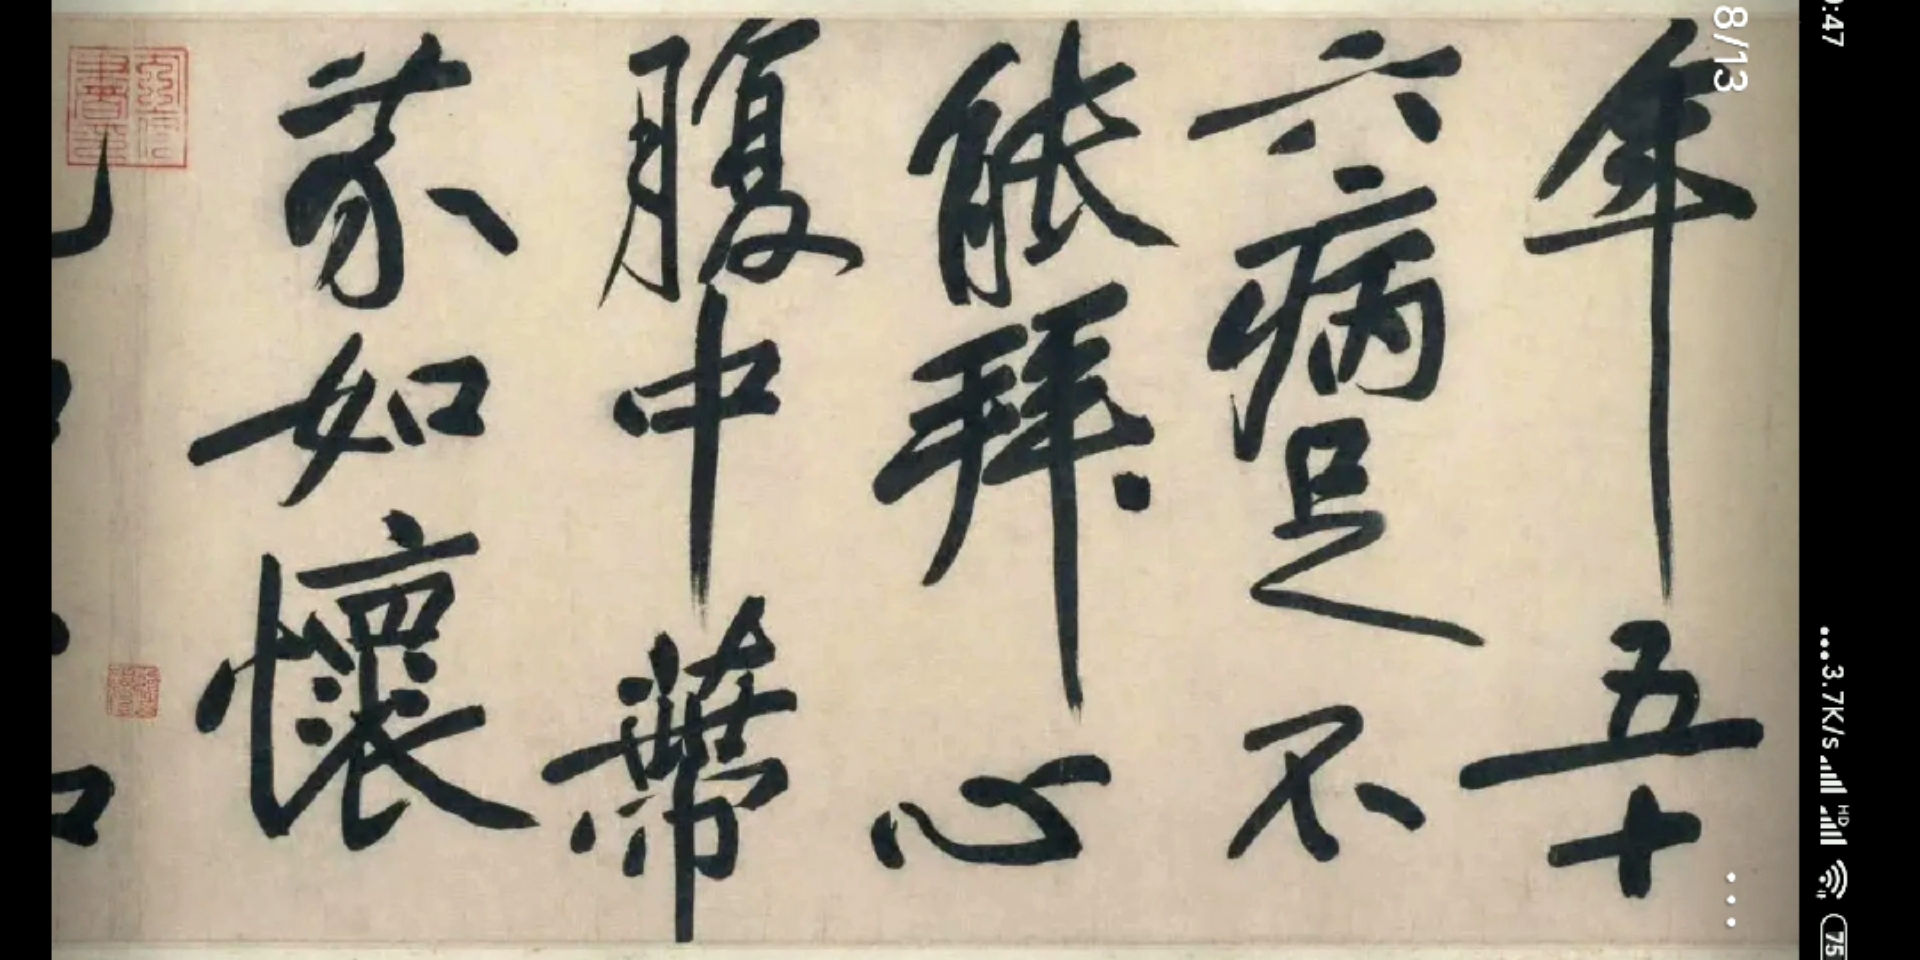 年五十
六病足不
能拜心
腹中蔕
芥如懷
8/13
:47
...3.7K/s
HD
75